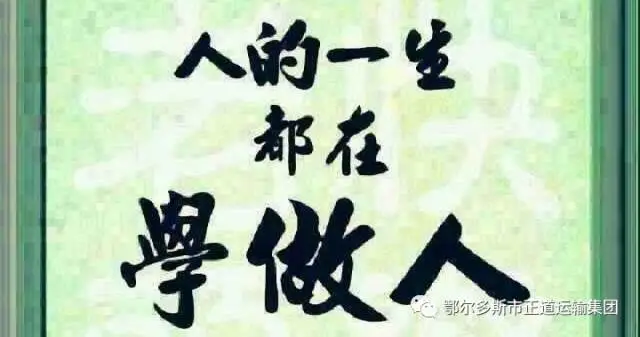 人的一生
都在
學做人
鄂尔多斯市正道运输集团